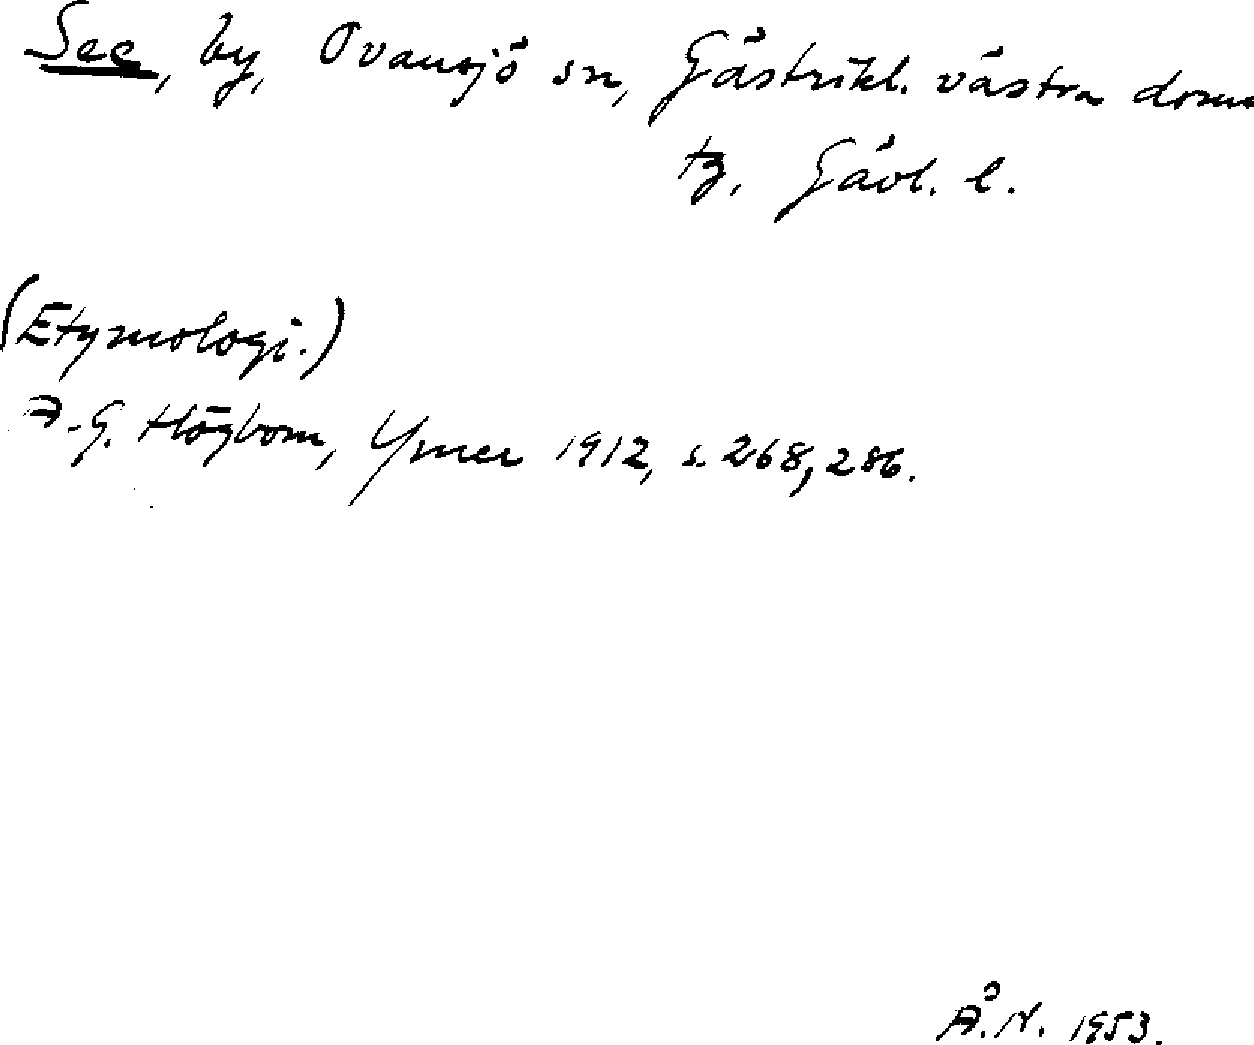 See, by, Ovansjö sn, Gästrikl. västra doms
tg, Gävl. l.
(Etymologi.)
A.G. Högbom, Ymer 1912, s. 268, 286.
Å.N. 1953.